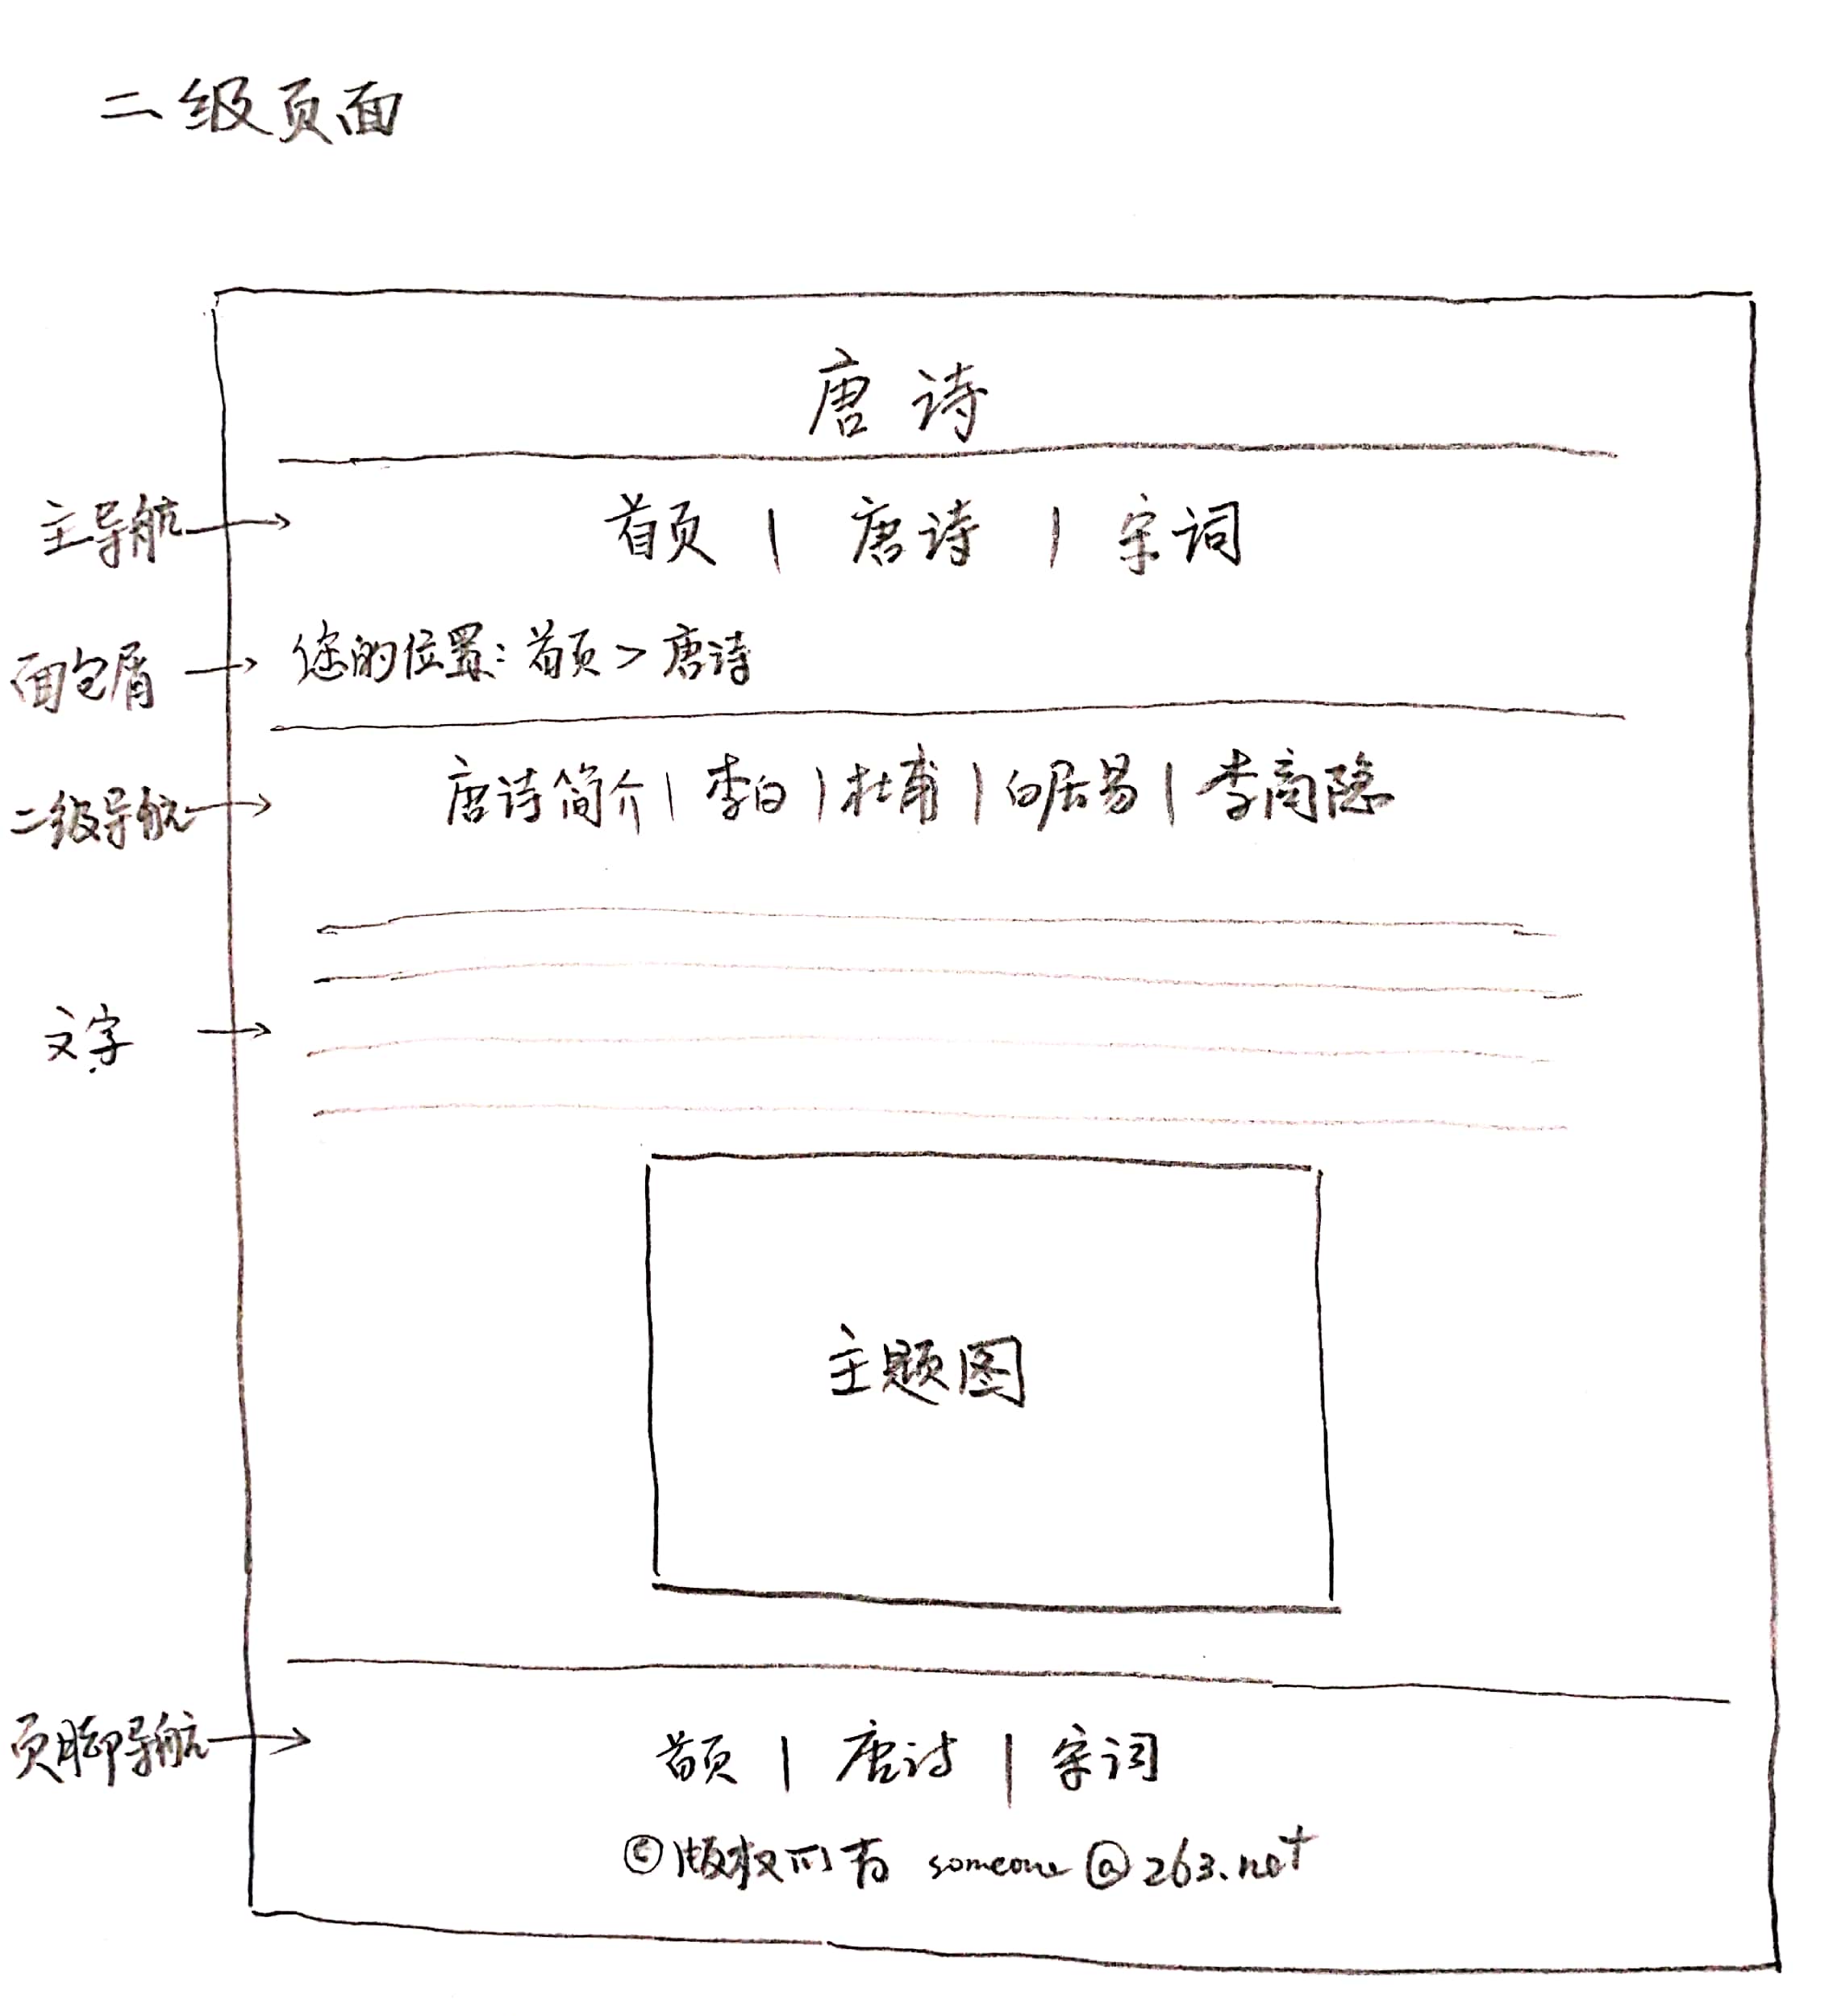 二级页面
唐诗
主导航 首页 | 唐诗 | 宋词
面包屑 您的位置：首页 > 唐诗
二级导航 唐诗简介 | 李白 | 杜甫 | 白居易 | 李商隐
文字
主题图
页脚导航 首页 | 唐诗 | 宋词
©版权所有 someone@263.net